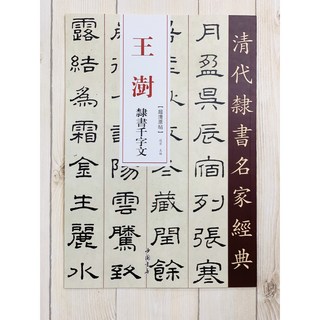 清代隸書名家經典
王澍
隸書千字文
【超清原帖】
月盈昃辰宿列張寒
藏閏餘
陽雲騰致
露結為霜金生麗水
中国书店